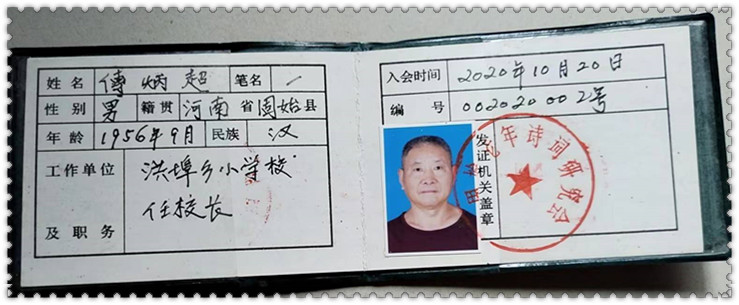 姓名 傅炳超 笔名 一
性别 男 籍贯 河南省固始县
年龄 1956年9月 民族 汉
工作单位及职务 洪埠乡小学校
任校长
入会时间 2020年10月20日
编号 0020200002号
发证机关盖章
老年诗词研究会